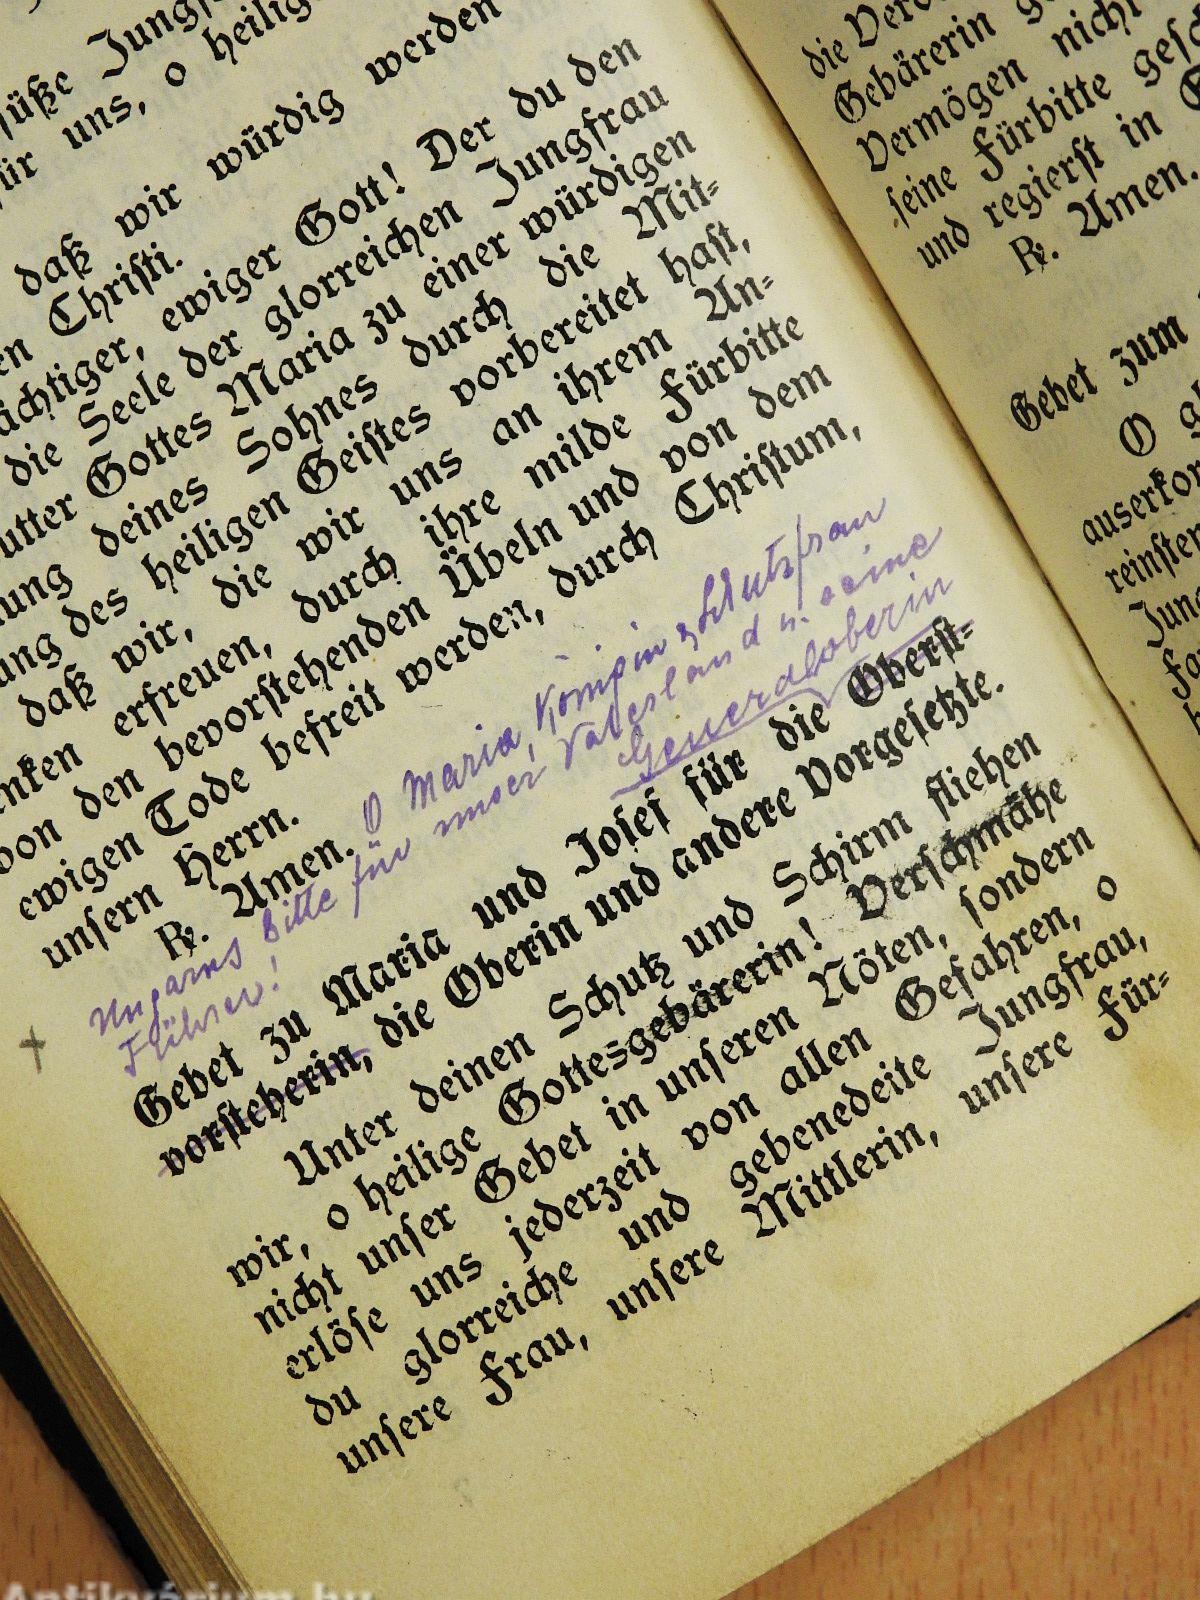 süße
für uns, o heilig
daß wir würdig werden
en Christi.
ächtiger, ewiger Gott! Der du den
die Seele der glorreichen Jungfrau
utter Gottes Maria zu einer würdigen
ung deines Sohnes durch die Mit-
ung des heiligen Geistes vorbereitet hast,
daß wir, die wir uns an ihrem An-
nken erfreuen, durch ihre milde Fürbitte
von den bevorstehenden Übeln und von dem
ewigen Tode befreit werden, durch Christum,
unsern Herrn.
℟. Amen.
O Maria, Königin u. Schutzfrau
Ungarns bitte für unser Vaterland u. seine
Führer!
Generaloberin
Gebet zu Maria und Josef für die Oberst-
vorsteherin, die Oberin und andere Vorgesetzte.
Unter deinen Schutz und Schirm fliehen
wir, o heilige Gottesgebärerin! Verschmähe
nicht unser Gebet in unseren Nöten, sondern
erlöse uns jederzeit von allen Gefahren, o
du glorreiche und gebenedeite Jungfrau,
unsere Frau, unsere Mittlerin, unsere Für-
die
Gebärerin
Vermögen nicht
seine Fürbitte
und regierst in
℟. Amen.
Gebet zum
O
auserkor
reinsten
Jung
Antikvárium.hu